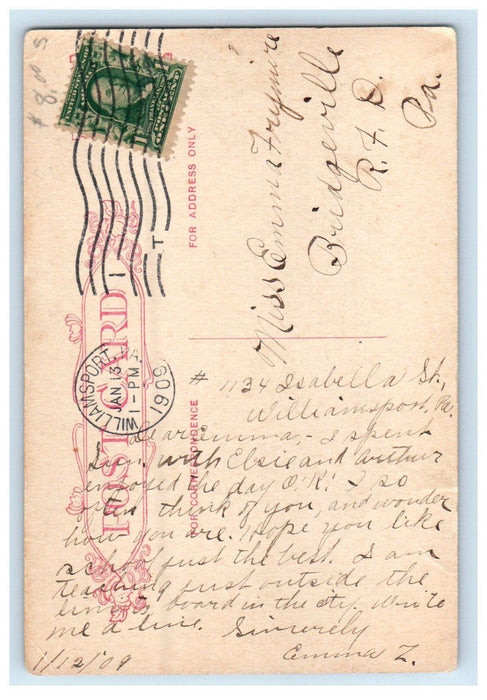 $ 8.00 S
POST CARD
FOR ADDRESS ONLY
FOR CORRESPONDENCE
WILLIAMSPORT, PA.
JAN 13
1-PM
1909
1
T
Miss Emma Frymire
Bridgeville
R. F. D.
Pa.
# 1134 Isabella St.,
Williamsport, Pa.
Dear Emma, - I spent
Sun. with Elsie and Arthur
enjoyed the day O.K! - I so
often think of you, and wonder
how you are. Hope you like
school just the best. I am
teaching just outside the
line, board in the city. Write
me a line. Sincerely
Emma Z.
1/12/09